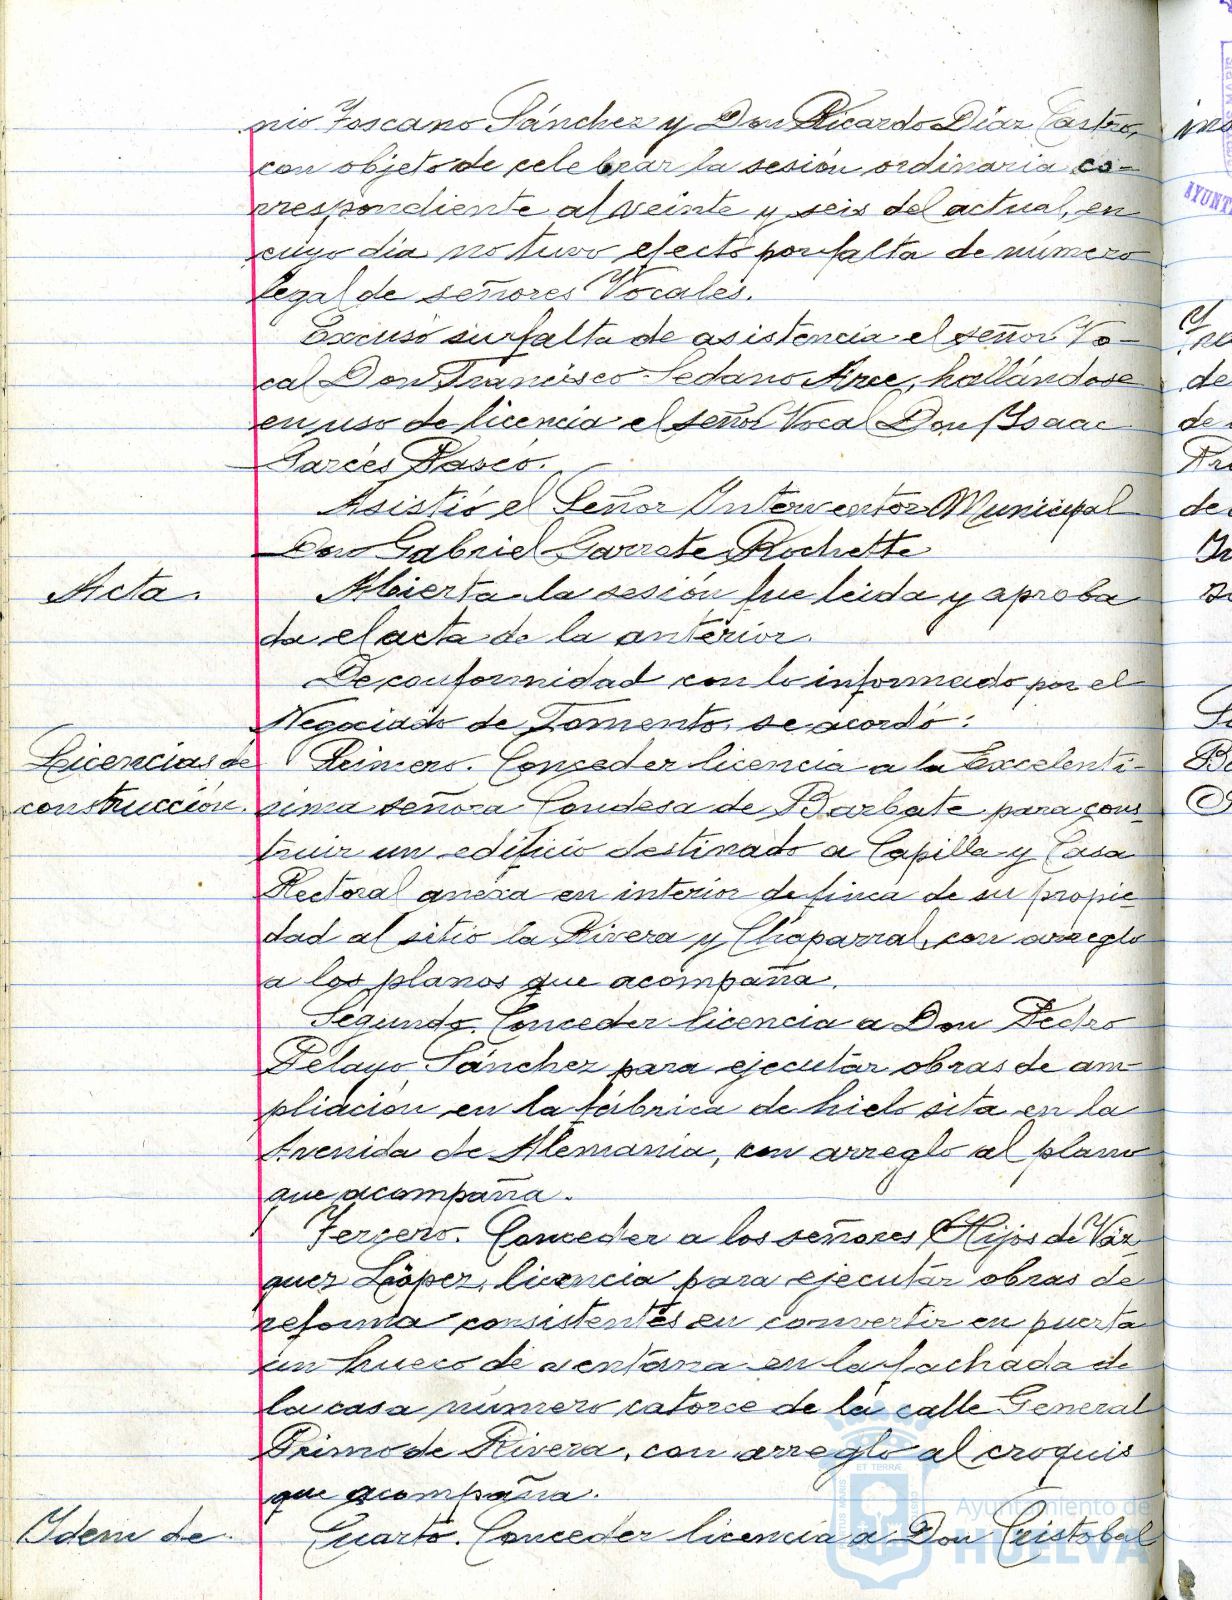 nio Toscano Sánchez y Don Ricardo Díaz Castro,
con objeto de celebrar la sesión ordinaria co-
rrespondiente al veinte y seis del actual, en
cuyo dia no tuvo efecto por falta de número
legal de señores Vocales.
Excusó su falta de asistencia el señor Vo-
cal Don Francisco Sedano Arce, hallándose
en uso de licencia el señor Vocal Don Isaac
Garcés Pasco.
Asistió el Señor Interventor Municipal
Don Gabriel Garrate Rochette
Acta.
Abierta la sesión fue leida y aproba
da el acta de la anterior.
De conformidad con lo informado por el
Negociado de Fomento, se acordó:
Licencias de
construcción.
Primero. Conceder licencia a la Excelentí-
sima señora Condesa de Barbate para cons-
truir un edificio destinado a Capilla y Casa
Rectoral anexa en interior de finca de su propie-
dad al sitio la Rivera y Chaparral, con arreglo
a los planos que acompaña.
Segundo. Conceder licencia a Don Pedro
Pelayo Sánchez para ejecutar obras de am-
pliación en la fábrica de hielo sita en la
Avenida de Alemania, con arreglo al plano
que acompaña.
Tercero. Conceder a los señores Hijos de Váz-
quez López, licencia para ejecutar obras de
reforma consistentes en convertir en puerta
un hueco de ventana en la fachada de
la casa número catorce de la calle General
Primo de Rivera, con arreglo al croquis
que acompaña.
Idem de
Cuarto. Conceder licencia a Don Cristobal
Ayuntamiento de
HUELVA